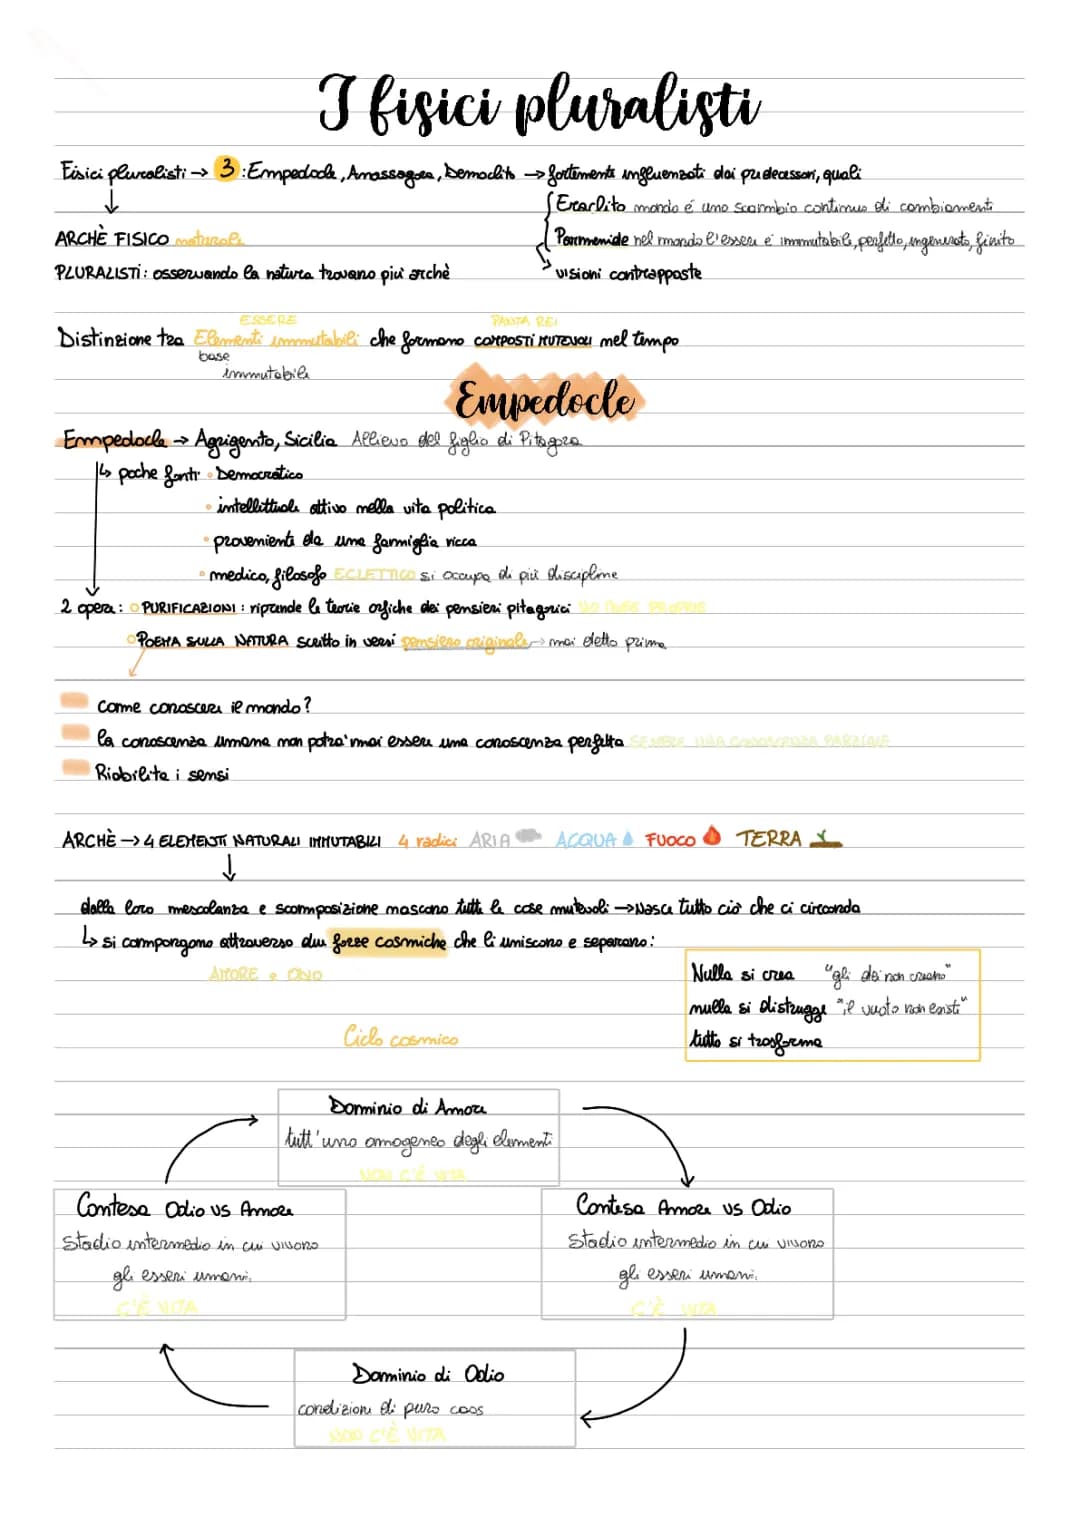 I fisici pluralisti
Fisici pluralisti → 3: Empedocle, Anassagora, Democrito → fortemente influenzati dai predecessori, quali
Eraclito mondo é uno scambio continuo di cambiamenti
ARCHÈ FISICO naturale
Parmenide nel mondo l'essere é immutabile, perfetto, ingenerato, finito
PLURALISTI: osservando la natura trovano piu' archè
visioni contrapposte
ESSERE PANTA REI
Distinzione tra Elementi immutabili che formano COMPOSTI MUTEVOLI nel tempo
base
immutabile
Empedocle
Empedocle → Agrigento, Sicilia Allievo del figlio di Pitagora
↳ poche fonti • Democratico
• intellettuale attivo nella vita politica
• proveniente da una famiglia ricca
• medico, filosofo ECLETTICO si occupa di più discipline
2 opere: PURIFICAZIONI: riprende le teorie orfiche dei pensieri pitagorici NO IDEE PROPRIE
POEMA SULLA NATURA scritto in versi pensiero originale → mai detto prima
Come conoscere il mondo?
la conoscenza umana non potra' mai essere una conoscenza perfetta SEMPRE UNA CONOSCENZA PARZIALE
Riabilita i sensi
ARCHÈ → 4 ELEMENTI NATURALI IMMUTABILI 4 radici ARIA ACQUA FUOCO TERRA
dalla loro mescolanza e scomposizione nascono tutte le cose mutevoli → Nasce tutto ciò che ci circonda
↳ si compongono attraverso due forze cosmiche che li uniscono e separano:
AMORE e ODIO
Nulla si crea "gli dei non creano"
nulla si distrugge "il vuoto non esiste"
tutto si trasforma
Ciclo cosmico
Dominio di Amore
tutt'uno omogeneo degli elementi
NON C'È VITA
Contesa Odio vs Amore
Stadio intermedio in cui vivono
gli esseri umani.
C'È VITA
Contesa Amore vs Odio
Stadio intermedio in cui vivono
gli esseri umani.
C'È VITA
Dominio di Odio
condizione di puro caos
NON C'È VITA